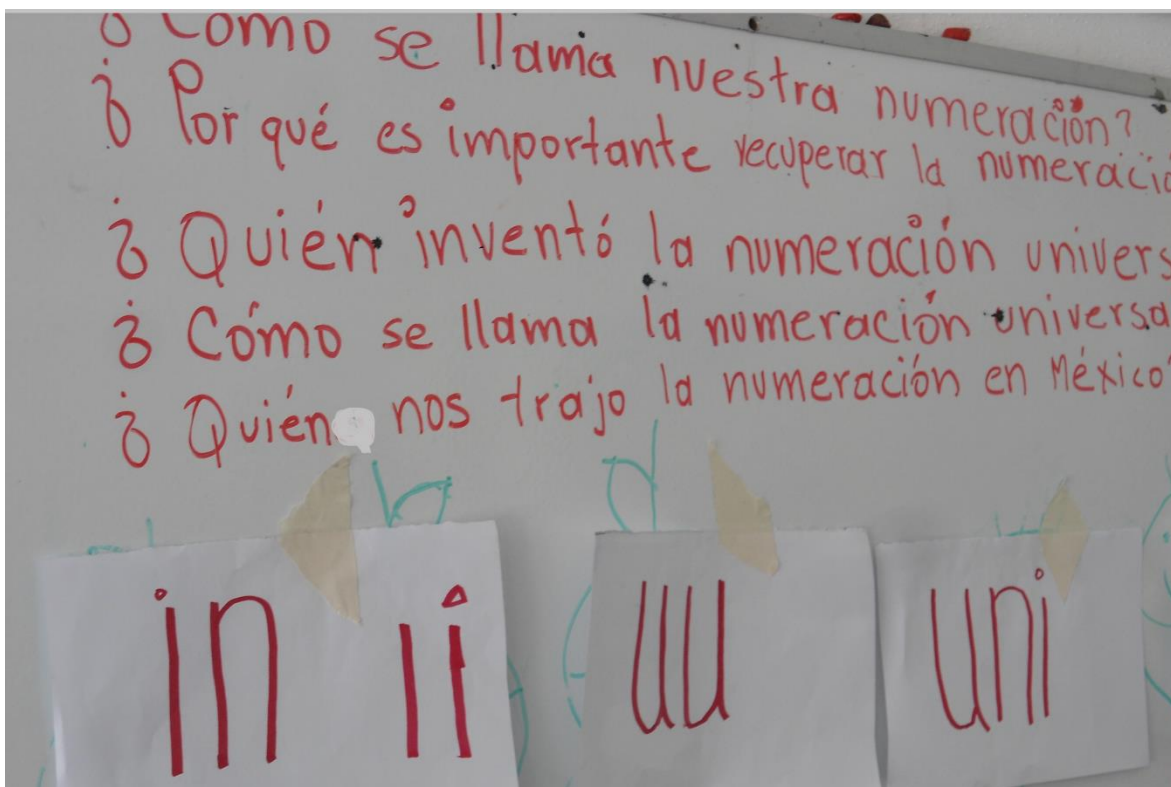 ¿Como se llama nuestra numeración?
¿Por qué es importante recuperar la numeració
¿Quién inventó la numeración univers
¿Cómo se llama la numeración universa
¿Quién nos trajo la numeración en México
in ii uu uni